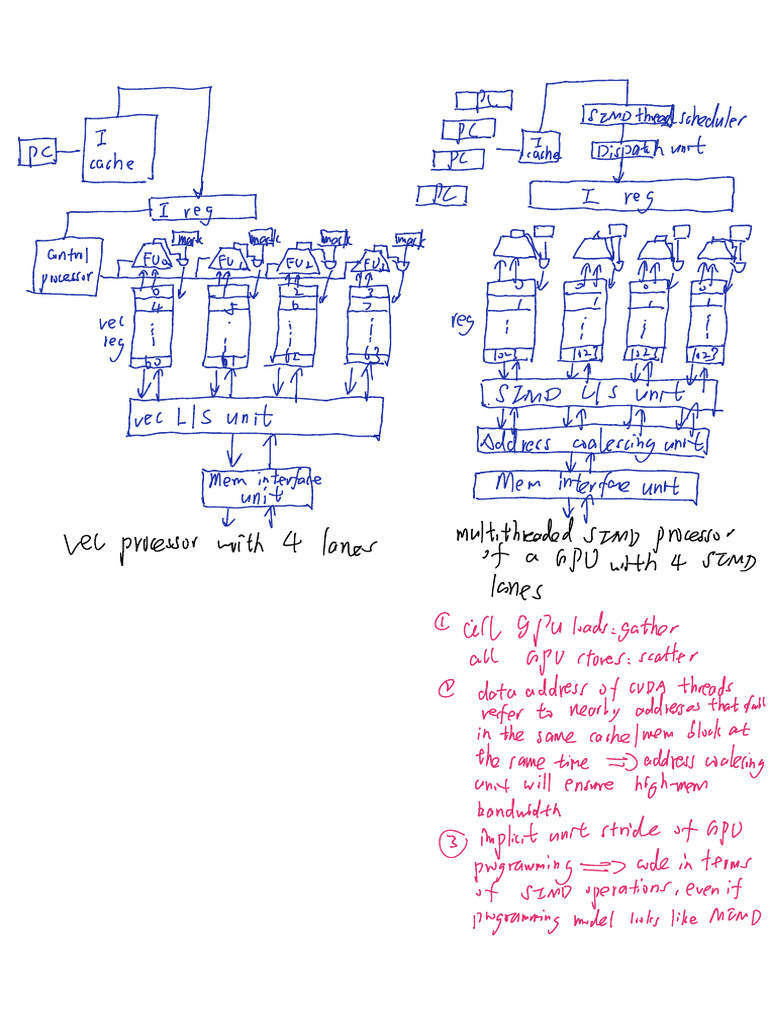 PC
I
cache
I reg
Control
processor
mask
mask
mask
mask
FU0
FU1
FU2
FU3
0
2
3
4
5
6
7
vec
reg
60
61
62
63
vec L/S unit
Mem interface
unit
vec processor with 4 lanes
PC
PC
PC
PC
I
cache
SIMD thread scheduler
Dispatch unit
I reg
reg
0
0
0
0
1
1
1
1023
1023
1023
1023
SIMD L/S unit
Address coalescing unit
Mem interface unit
multithreaded SIMD processor
of a GPU with 4 SIMD
lanes
① all GPU loads: gather
all GPU stores: scatter
② data address of CUDA threads
refer to nearby addresses that fall
in the same cache/mem block at
the same time ⇒ address coalescing
unit will ensure high-mem
bandwidth
③ implicit unit stride of GPU
programming ⇒ code in terms
of SIMD operations, even if
programming model looks like MIMD